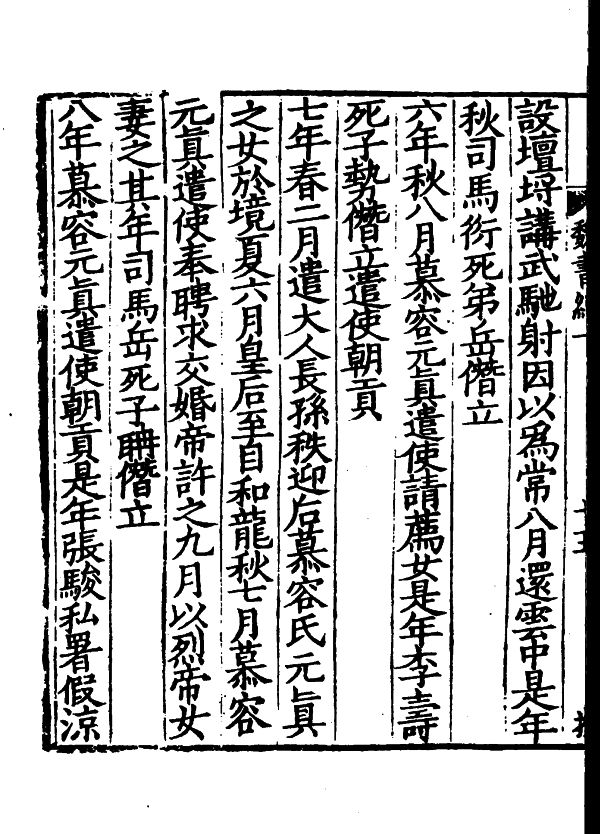 魏書紀一
十五
設壇埒講武馳射因以爲常八月還雲中是年
秋司馬衍死弟岳僭立
六年秋八月慕容元眞遣使請薦女是年李壽
死子勢僭立遣使朝貢
七年春二月遣大人長孫秩迎后慕容氏元眞
之女於境夏六月皇后至自和龍秋七月慕容
元眞遣使奉聘求交婚帝許之九月以烈帝女
妻之其年司馬岳死子聃僭立
八年慕容元眞遣使朝貢是年張駿私署假涼